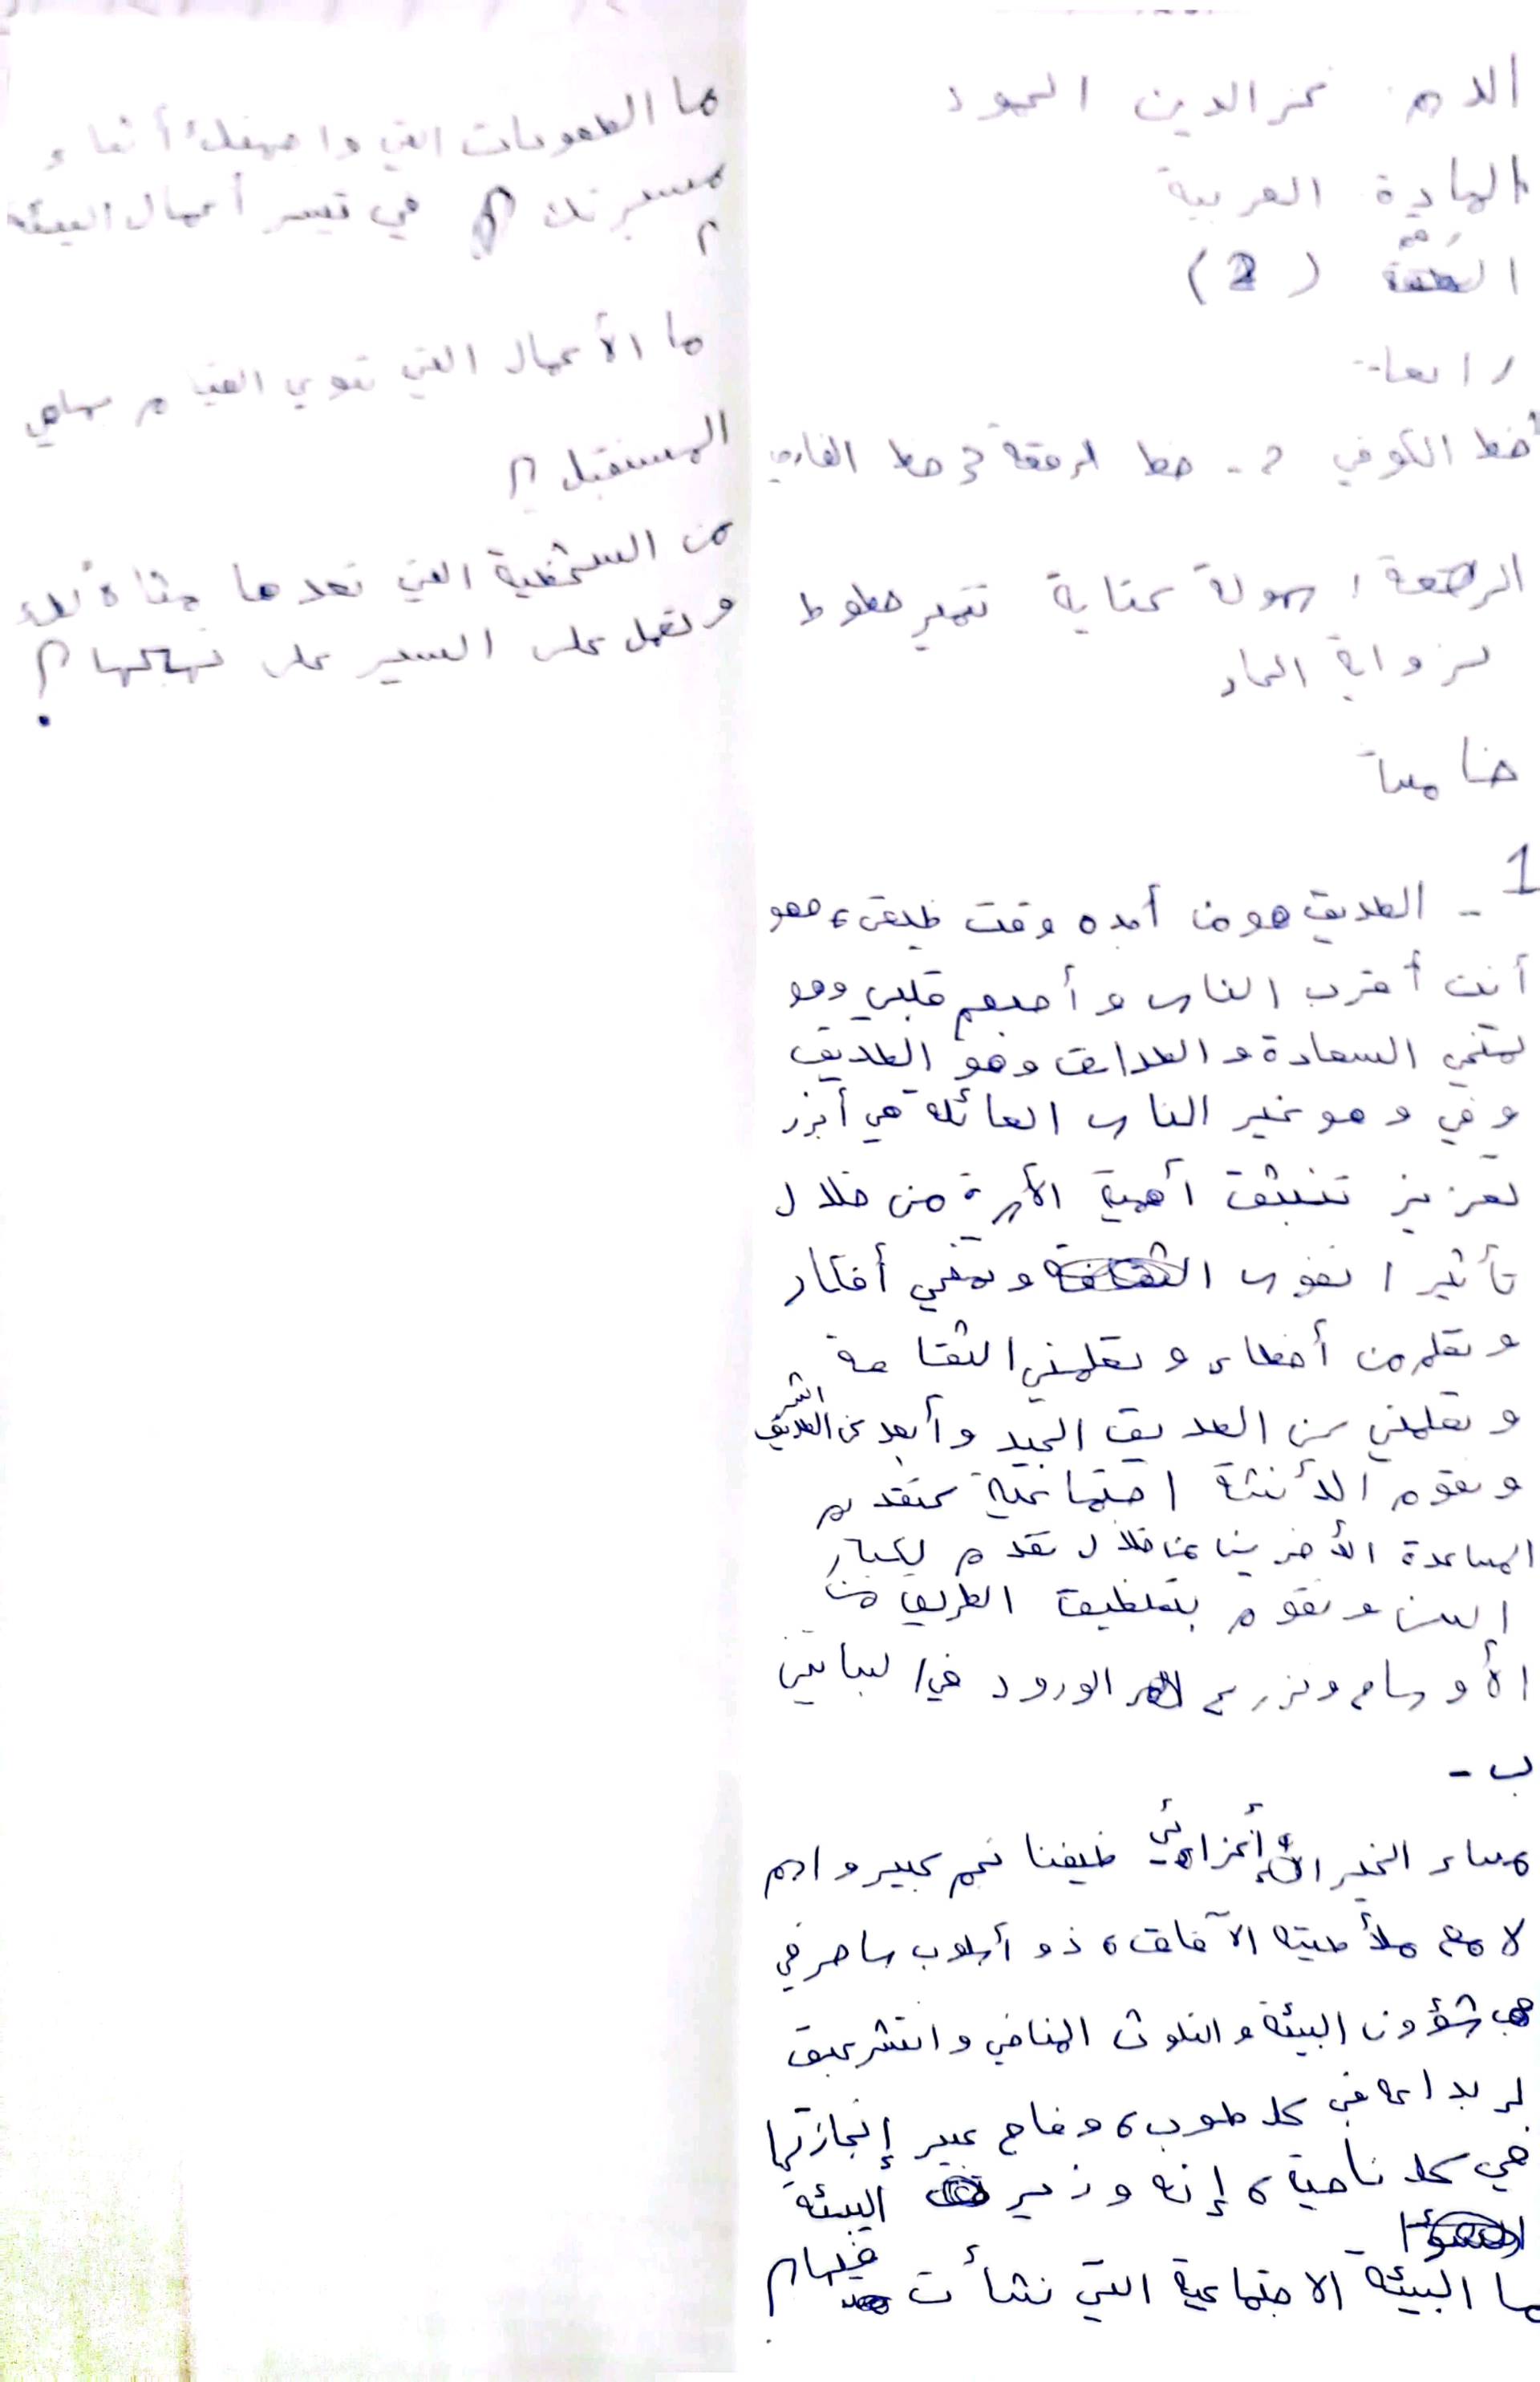 الدين الحمود
المادة العربية
(2)
رابعاً
خط الكوفي 2- خط الرقعة 3 خط الفارسي
الرقعة : سهولة كتابة تتميز خطوط
خامساً
1- الصديق هو من أجده وقت ضيقي، فهو
أنت أقرب الناس و أحبهم قلبي وهو
السعادة و الصداقة وهو الصديق
وفي وهو خير الناس العائلة هي أبرز
تعزيز تنبثق أهمية الأسرة من خلال
تأثير النفوس وتنمي أفكار
و تعلم من أخطاء و تعلمني الثقافة
و تعلمني من الصديق الجيد وأبعد عن الصديق الشر
ونقوم الأنشة اجتماعية كتقديم
المساعدة الأخرين من خلال تقدم لكبار
السن ونقوم بتنظيف الطريق من
الأوساخ ونزرع الورود في البساتين
ب -
مساء الخير أعزائي ضيفنا نجم كبير واسم
لامع ملأ صيته الآفاق، ذو أسلوب ساحر في
شؤون البيئة والتلوث المناخي وانتشر عبق
في كل صوب، وفاح عبير إنجازتها
في كل ناحية، إنه وزير البيئة
ما البيئة الاجتماعية التي نشأت فيها؟
ما الصعوبات التي واجهتك أثناء
مسيرتك في تيسر أعمال البيئة
؟
ما الأعمال التي تنوي القيام بها في
المستقبل؟
من الشخصية التي تعدها مثلاً لك
وتعمل على السير على نهجها؟